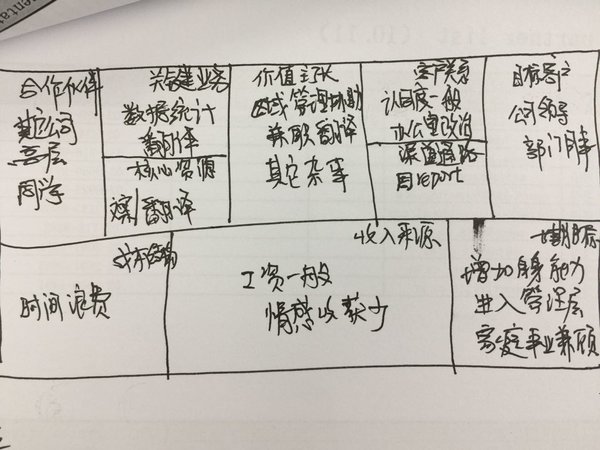 partner list (10.11)
合作伙伴
其它公司
高层
同学
关键业务
数据统计
翻译
核心资源
翻译
价值主张
区域管理协助
兼职翻译
其它杂事
客户关系
认同度一般
办公室政治
渠道通路
周report
目标客户
公司领导
部门同事
成本结构
时间浪费
收入来源
工资一般
情感收获少
增加自身能力
进入管理层
家庭事业兼顾